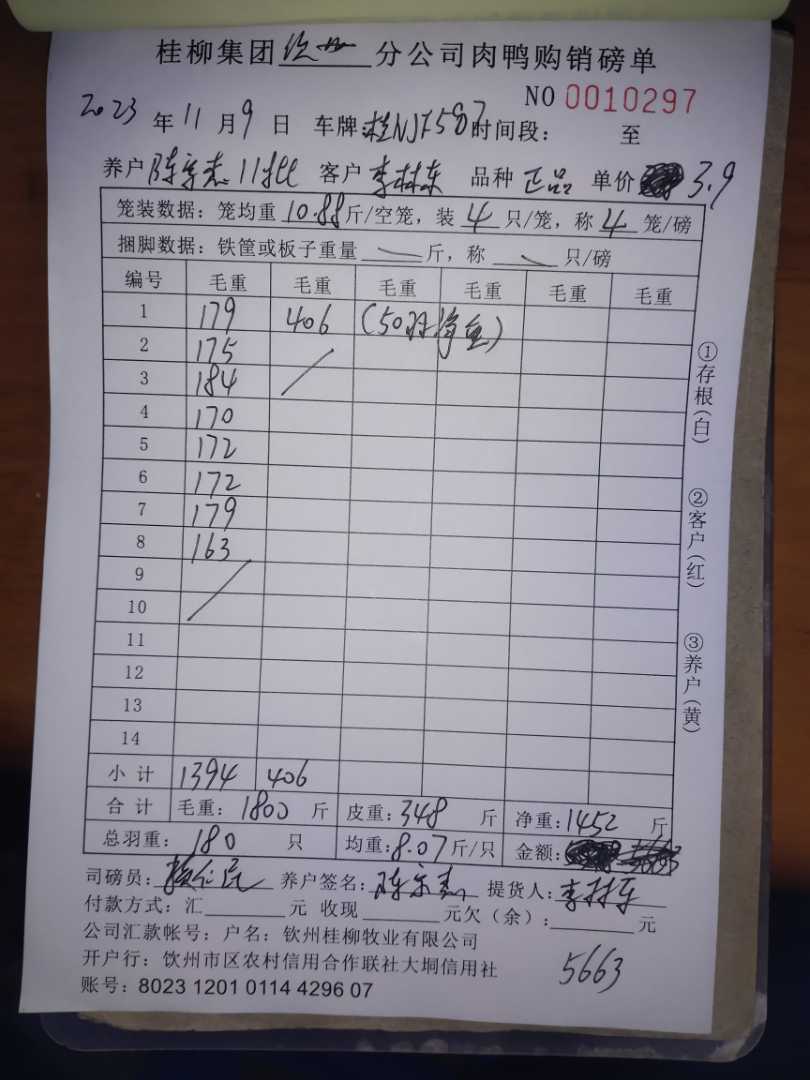 桂柳集团钦州分公司肉鸭购销磅单
NO 0010297
2023年11月9日 车牌:桂NJF587 时间段: 至
养户 陈宗志 11批 客户 李林东 品种 正品 单价 3.9
笼装数据：笼均重10.88斤/空笼，装4只/笼，称4笼/磅
捆脚数据：铁筐或板子重量 斤，称 只/磅
编号 毛重 毛重 毛重 毛重 毛重 毛重
1 179 406 (50羽净重)
2 175
3 184
4 170
5 172
6 172
7 179
8 163
9
10
11
12
13
14
小计 1394 406
合计 毛重：1800斤 皮重：348斤 净重：1452斤
总羽重：180只 均重：8.07斤/只 金额：
司磅员： 养户签名：陈宗志 提货人：李林东
付款方式：汇 元 收现 元欠（余）： 元
公司汇款帐号：户名：钦州桂柳牧业有限公司
开户行：饮州市区农村信用合作联社大垌信用社
5663
账号：8023 1201 0114 4296 07
①存根(白)
②客户(红)
③养户(黄)